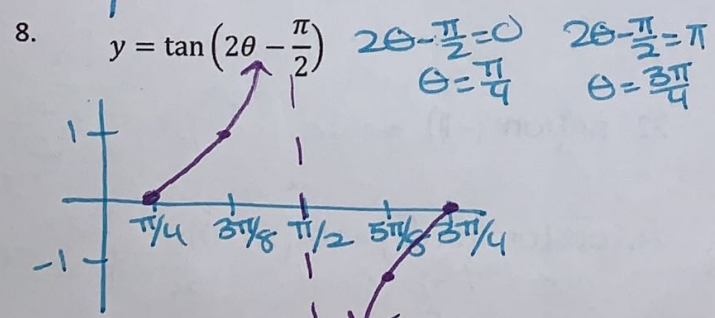 8. y = tan(2θ − π/2) 2θ-π/2=0 2θ-π/2=π
θ=π/4 θ=3π/4
1
π/4 3π/8 π/2 5π/8 3π/4
-1